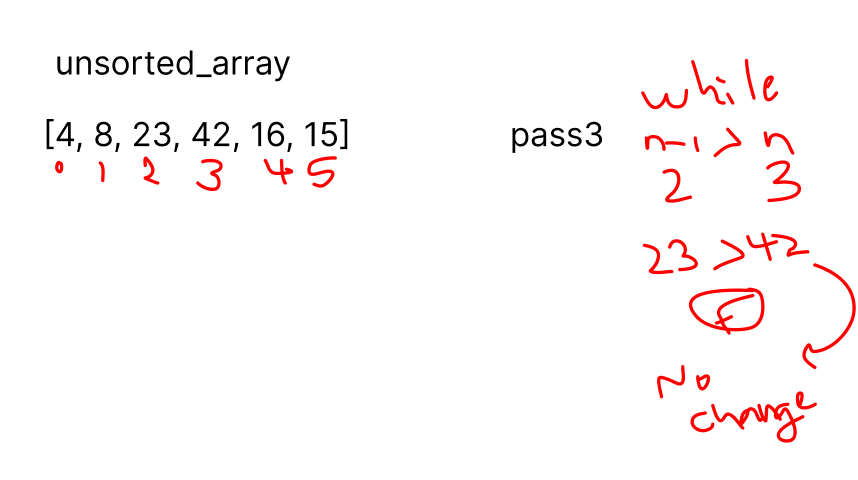 unsorted_array
[4, 8, 23, 42, 16, 15]
0 1 2 3 4 5
pass3
while
n-1 > n
2 3
23 > 42
F
No
change